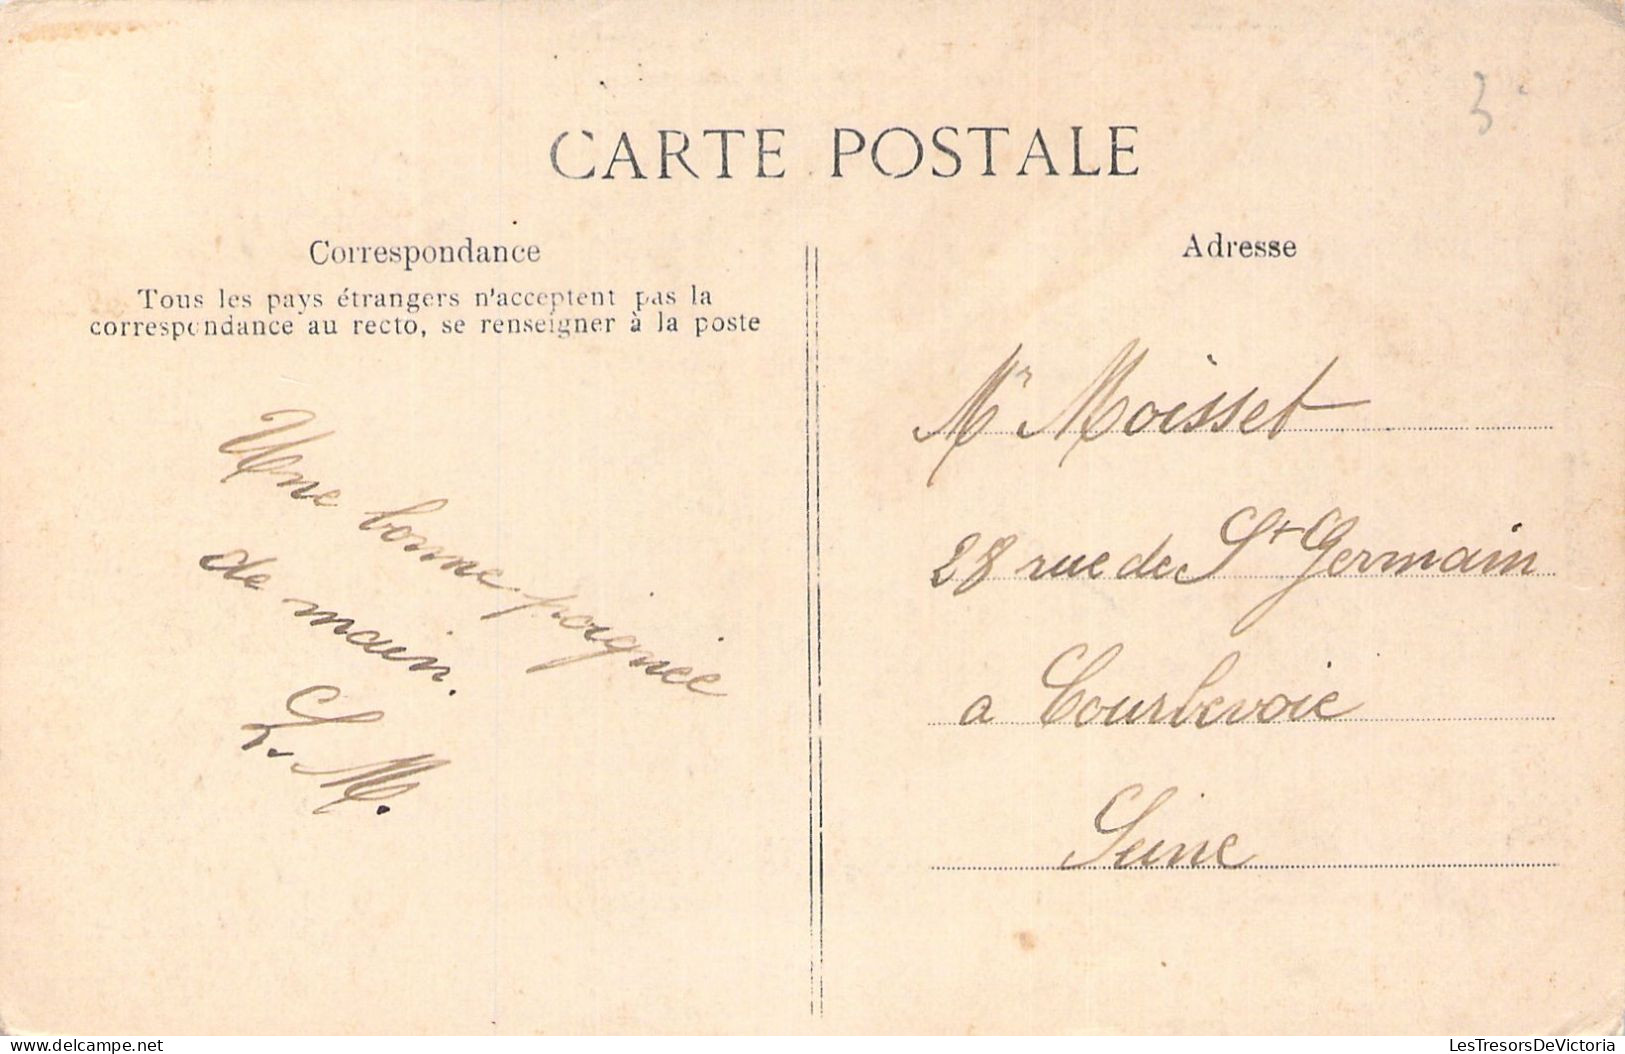 CARTE POSTALE
Correspondance
Tous les pays étrangers n'acceptent pas la
correspondance au recto, se renseigner à la poste
Une bonne poignée
de main.
L. M.
Adresse
Mr Moisset
28 rue de St Germain
a Courbevoie
Seine
3
LesTresorsDeVictoria
delcampe.net